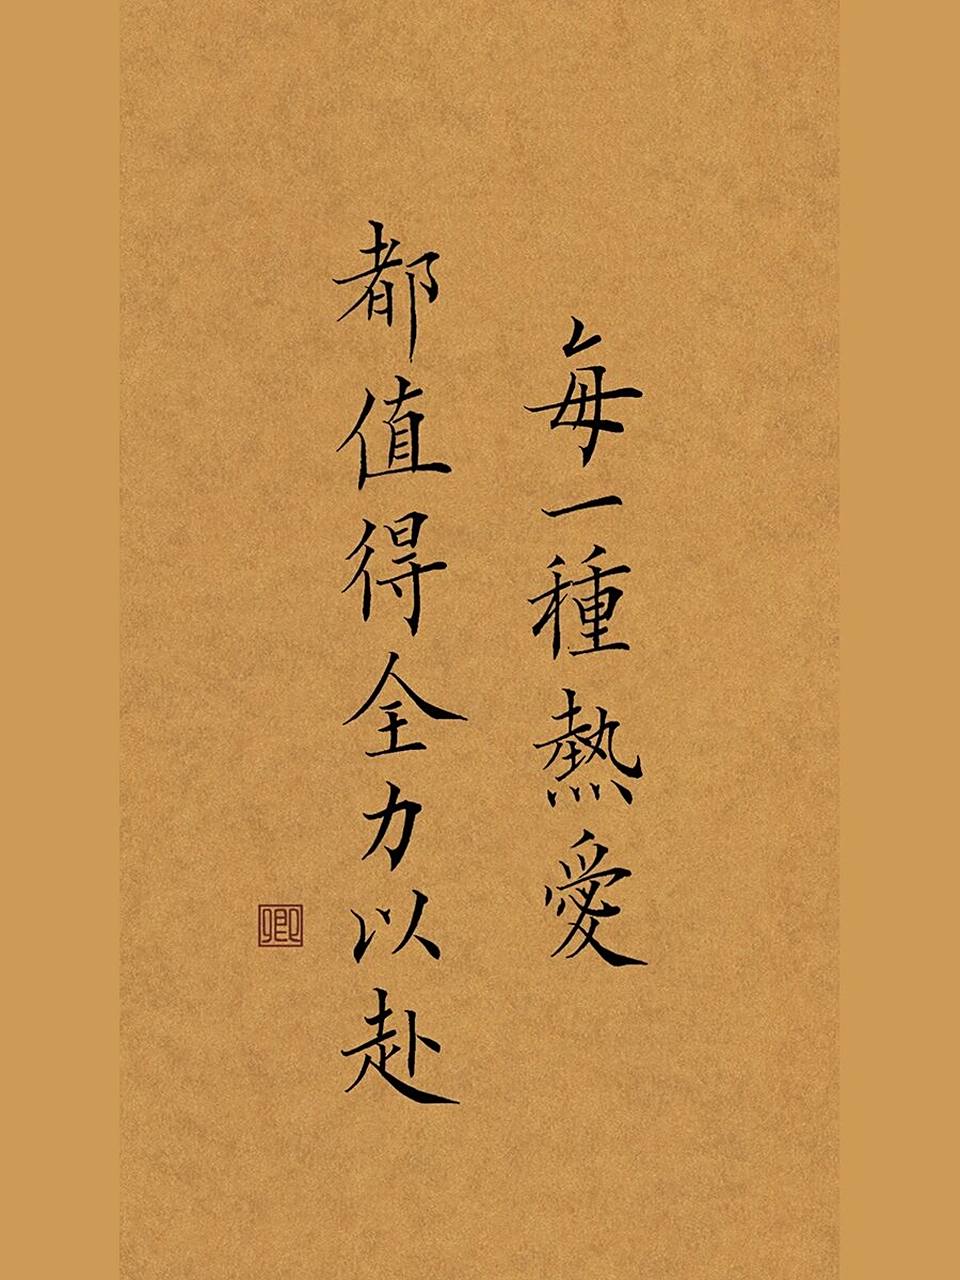 每一種熱愛
都值得全力以赴
卿